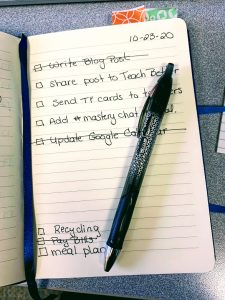 10-23-20
Write Blog Post
Share post to Teach Better
Send TY cards to
Add #masterychat
Update Google Calendar
Recycling
Pay Bills
meal plan